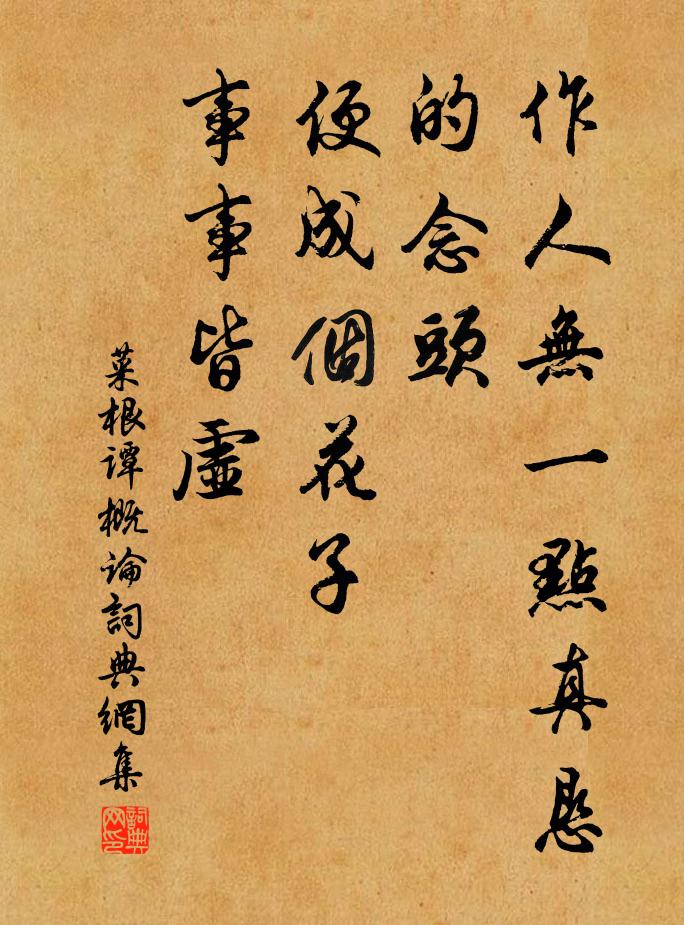 作人無一點真恳
的念頭
便成個花子
事事皆虛
菜根谭概論詞典網集
詞典
网印